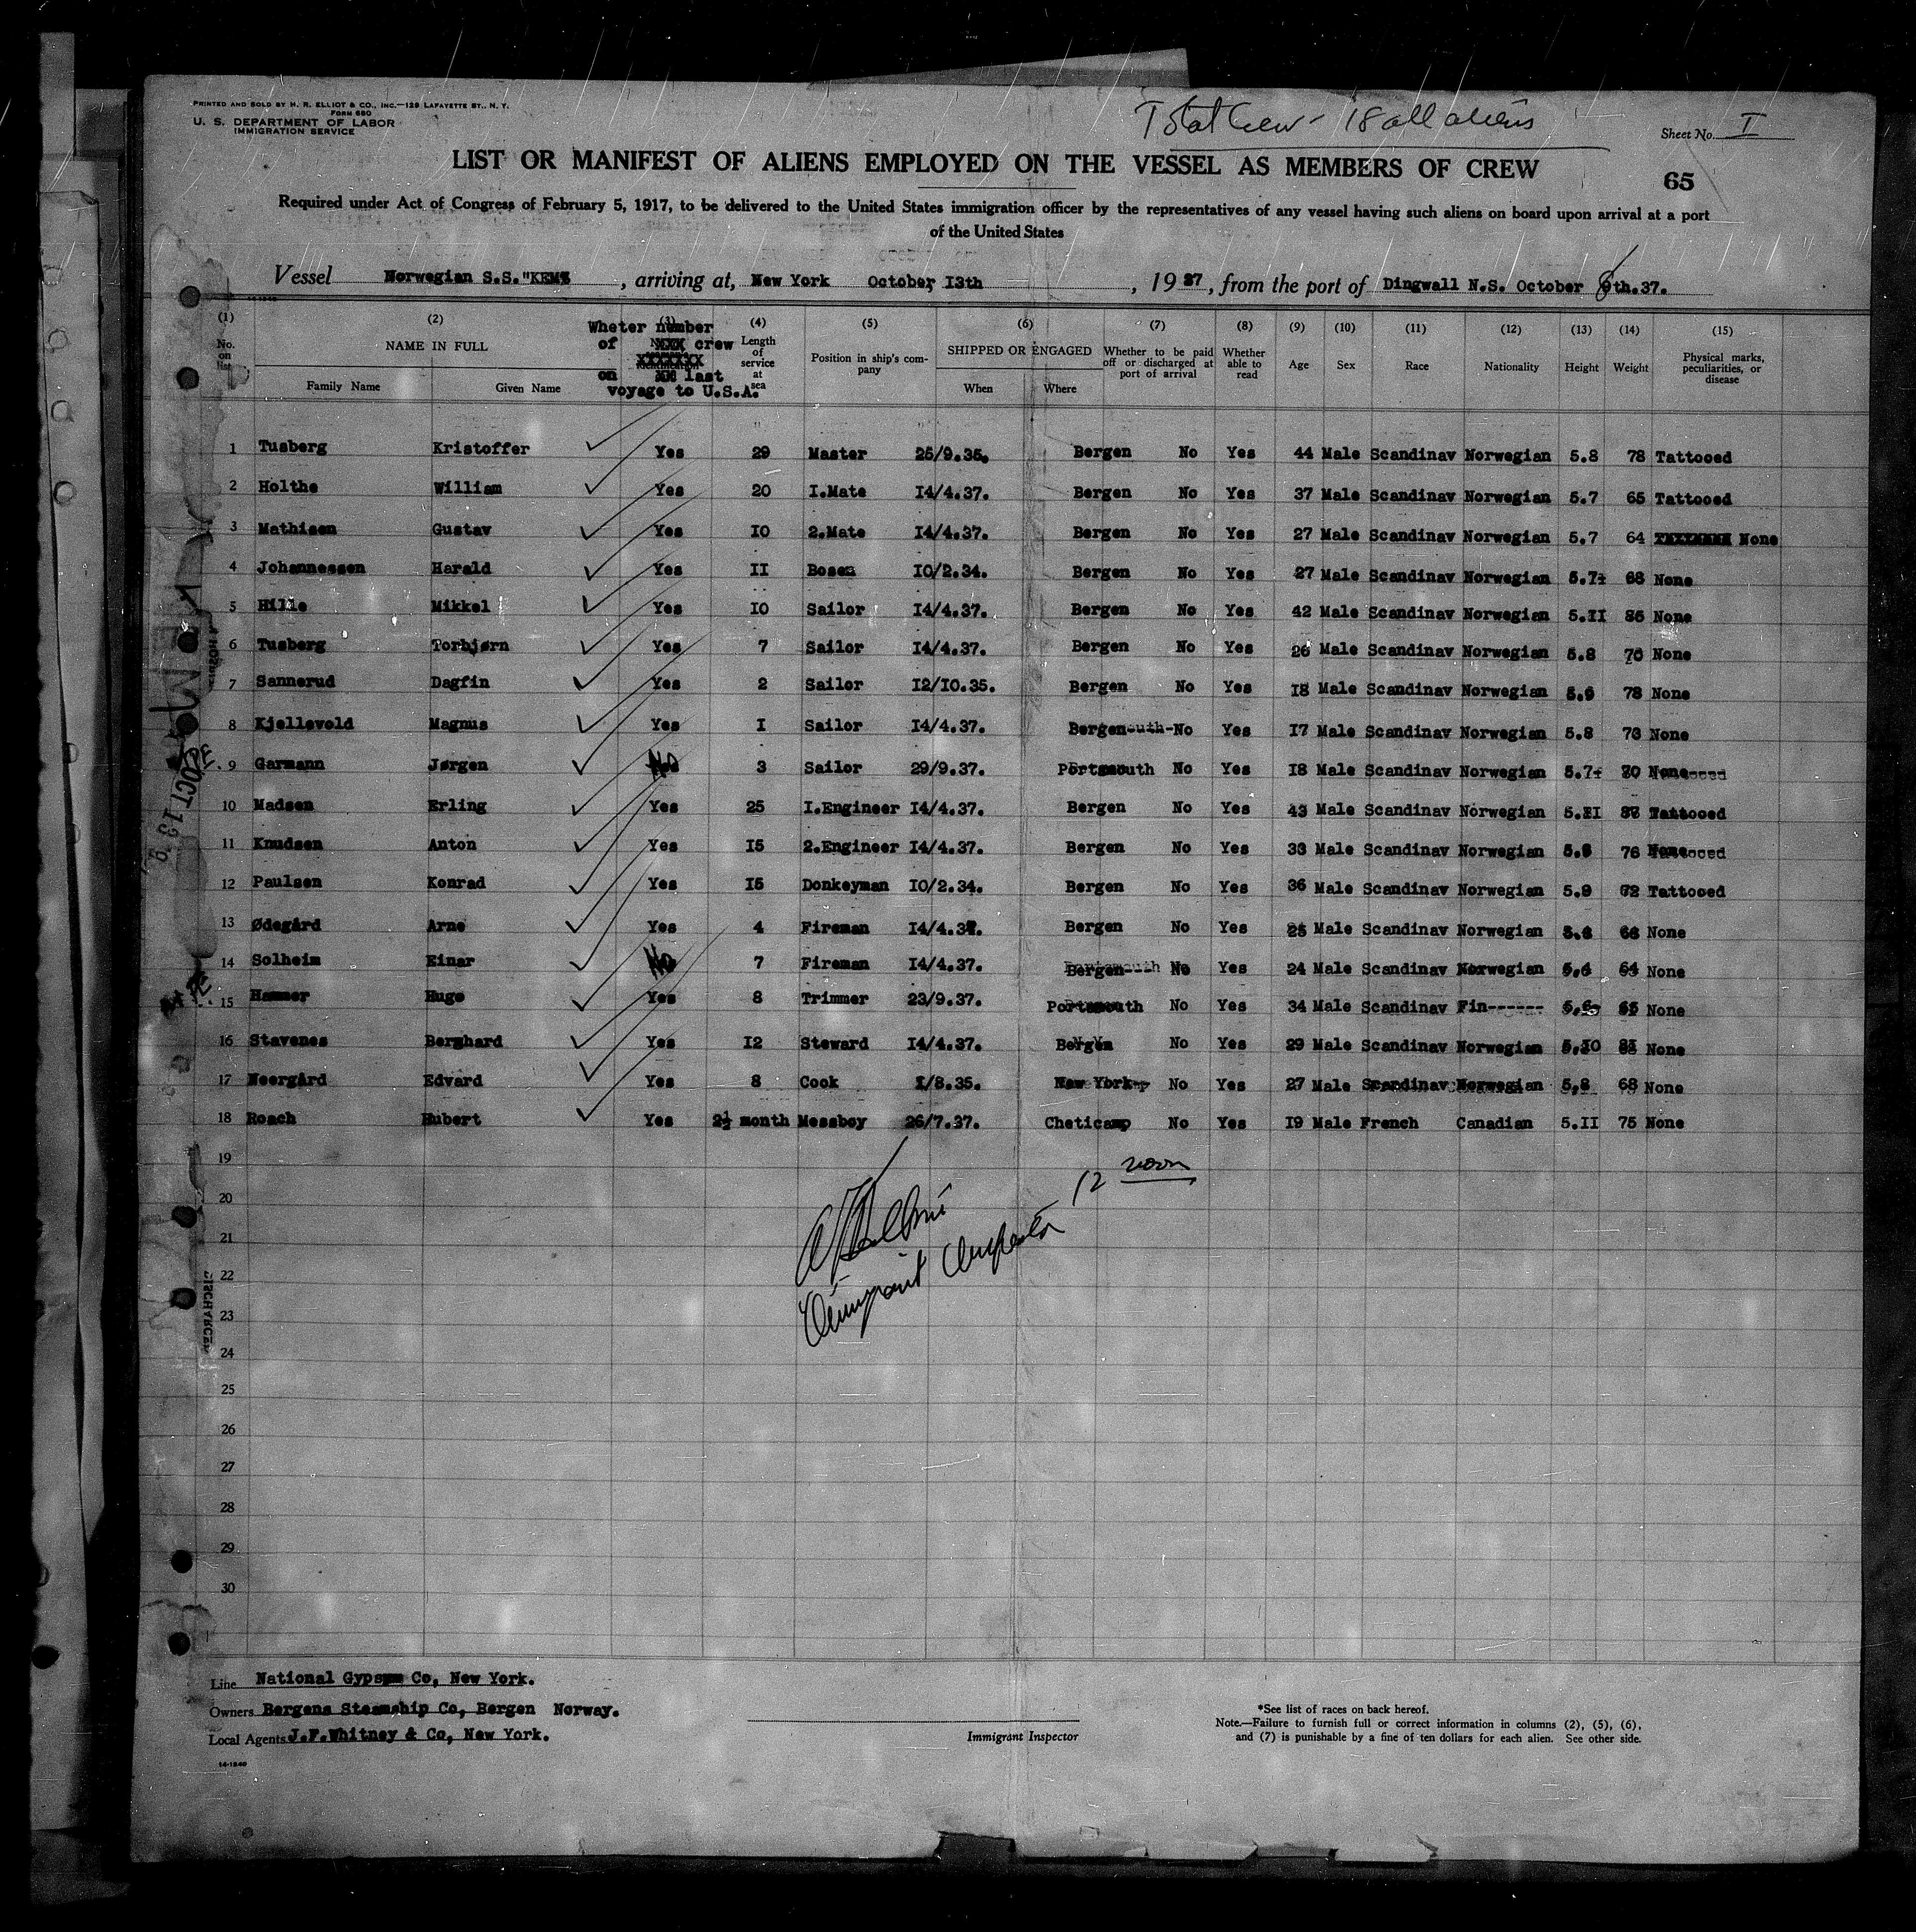 PRINTED AND SOLD BY H. R. ELLIOT & CO., INC.—129 LAFAYETTE ST., N. Y.
FORM 680
U. S. DEPARTMENT OF LABOR
IMMIGRATION SERVICE
Total Crew - 18 all aliens
Sheet No. I
LIST OR MANIFEST OF ALIENS EMPLOYED ON THE VESSEL AS MEMBERS OF CREW
65
Required under Act of Congress of February 5, 1917, to be delivered to the United States immigration officer by the representatives of any vessel having such aliens on board upon arrival at a port
of the United States
Vessel Norwegian S.S."KEM" , arriving at, New York October 13th , 1937, from the port of Dingwall N.S. October 8th.37.
(1) (2) (3) (4) (5) (6) (7) (8) (9) (10) (11) (12) (13) (14) (15)
No. on list NAME IN FULL Family Name Given Name Wheter number of crew on last voyage to U.S.A. Length of service at sea Position in ship's company SHIPPED OR ENGAGED When Where Whether to be paid off or discharged at port of arrival Whether able to read Age Sex Race Nationality Height Weight Physical marks, peculiarities, or disease
1 Tusberg Kristoffer Yes 29 Master 25/9.35. Bergen No Yes 44 Male Scandinav Norwegian 5.8 78 Tattooed
2 Holthe William Yes 20 I.Mate I4/4.37. Bergen No Yes 37 Male Scandinav Norwegian 5.7 65 Tattooed
3 Mathisen Gustav Yes IO 2.Mate I4/4.37. Bergen No Yes 27 Male Scandinav Norwegian 5.7 64 None
4 Johannessen Harald Yes II Bosen IO/2.34. Bergen No Yes 27 Male Scandinav Norwegian 5.7½ 68 None
5 Hille Mikkel Yes IO Sailor I4/4.37. Bergen No Yes 42 Male Scandinav Norwegian 5.II 86 None
6 Tusberg Torbjørn Yes 7 Sailor I4/4.37. Bergen No Yes 26 Male Scandinav Norwegian 5.8 70 None
7 Sannerud Dagfin Yes 2 Sailor I2/IO.35. Bergen No Yes I8 Male Scandinav Norwegian 5.6 78 None
8 Kjellevold Magnus Yes I Sailor I4/4.37. Bergen No Yes I7 Male Scandinav Norwegian 5.8 73 None
9 Garmann Jørgen No 3 Sailor 29/9.37. Portsmouth No Yes I8 Male Scandinav Norwegian 5.7½ 70 None
10 Madsen Erling Yes 25 I.Engineer I4/4.37. Bergen No Yes 43 Male Scandinav Norwegian 5.II 87 Tattooed
11 Knudsen Anton Yes I5 2.Engineer I4/4.37. Bergen No Yes 33 Male Scandinav Norwegian 5.8 76 None
12 Paulsen Konrad Yes I5 Donkeyman IO/2.34. Bergen No Yes 36 Male Scandinav Norwegian 5.9 62 Tattooed
13 Ødegård Arne Yes 4 Fireman I4/4.37. Bergen No Yes 25 Male Scandinav Norwegian None
14 Solheim Einar No 7 Fireman I4/4.37. Bergen No Yes 24 Male Scandinav Norwegian 64 None
15 Hammer Hugo Yes 8 Trimmer 23/9.37. Portsmouth No Yes 34 Male Scandinav Fin------ None
16 Stavenes Berghard Yes I2 Steward I4/4.37. Bergen No Yes 29 Male Scandinav Norwegian 5.IO None
17 Neergård Edvard Yes 8 Cook I/8.35. New York No Yes 27 Male Scandinav Norwegian 5.8 68 None
18 Roach Hubert Yes 2½ month Messboy 26/7.37. Cheticamp No Yes I9 Male French Canadian 5.II 75 None
19
20
21
22
23
24
25
26
27
28
29
30
12 noon
Immigrant Inspector
OCT 13
DISCHARGED
Line National Gypsum Co, New York.
Owners Bergens Steamship Co, Bergen Norway.
Local Agents J.F.Whitney & Co, New York.
14-1240
Immigrant Inspector
*See list of races on back hereof.
Note.—Failure to furnish full or correct information in columns (2), (5), (6),
and (7) is punishable by a fine of ten dollars for each alien. See other side.